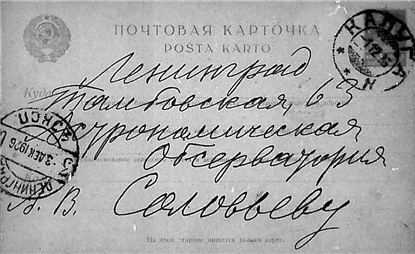 ПОЧТОВАЯ КАРТОЧКА
POSTA KARTO
КАЛУГА
Куда
Ленинград
Тамбовская, 63
Астрономическая
Обсерватория
А. В. Соловьеву
ЛЕНИНГРАД
ЭКСП
На этой стороне пишется только адрес.